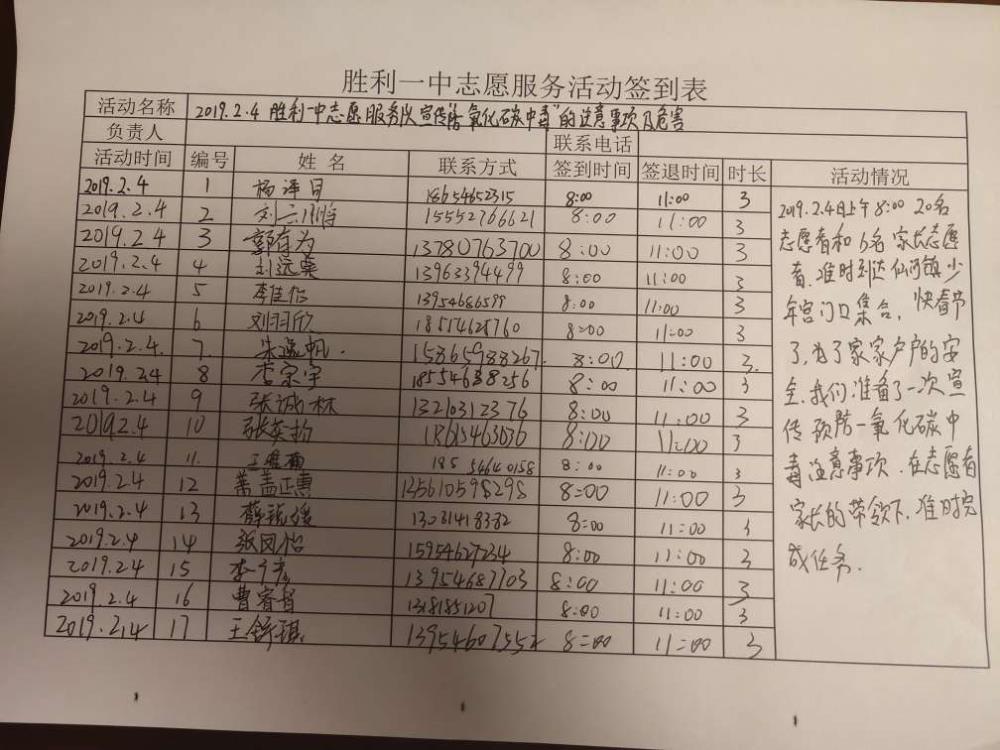 胜利一中志愿服务活动签到表
活动名称 2019.2.4 胜利一中志愿服务队宣传"防一氧化碳中毒"的注意事项及危害
负责人 联系电话
活动时间 编号 姓名 联系方式 签到时间 签退时间 时长 活动情况
2019.2.4 1 杨泽目 18654652315 8:00 11:00 3
2019.2.4 2 15552766621 8:00 11:00 3
2019.2.4 3 郭存为 13780763700 8:00 11:00 3
2019.2.4 4 刘远昊 13963394499 8:00 11:00 3
2019.2.4 5 李佳怡 13954686599 8:00 11:00 3
2019.2.4 6 刘羽欣 8:00 11:00 3
2019.2.4. 7. 朱逸帆. 15865988267. 8:00 11:00 3.
2019.2.4 8 李宗宇 18554638256 8:00 11:00 3
2019.2.4 9 张诚林 13210312376 8:00 11:00 3
2019.2.4 10 张英 8:00 11:00 3
2019.2.4 11. 18554640158 8:00 11:00 3
2019.2.4 12 盖正惠 8:00 11:00 3
2019.2.4 13 薛 13031418382 8:00 11:00 3
2019.2.4 14 张 15954627234 8:00 11:00 3
2019.2.4 15 李 13954687703 8:00 11:00 3
2019.2.4 16 曹睿哲 8:00 11:00 3
2019.2.4 17 王 8:00 11:00 3
2019.2.4日上午8:00 20名
志愿者和6名家长志愿
者,准时到达仙河镇少
年宫门口集合,快春节
了,为了家家户户的安
全,我们准备了一次宣
传预防一氧化碳中
毒注意事项.在志愿者
家长的带领下.准时完
成任务.